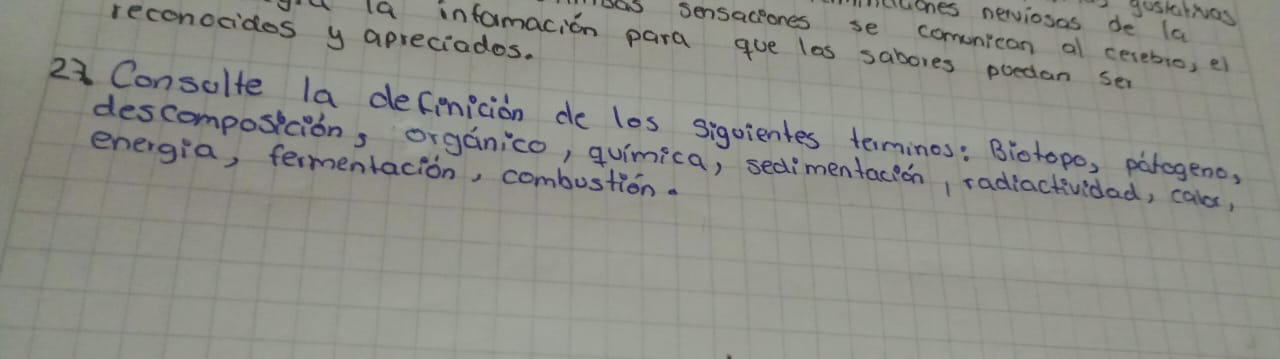 la infamación para que los sabores puedan ser
sensaciones se comunican al cerebro, el
nerviosas de la
gustativas
reconocidos y apreciados.
23 Consulte la definición de los siguientes terminos: Biotopo, pátogeno,
descomposición, orgánico, química, sedimentación, radiactividad, calor,
energia, fermentación, combustión.